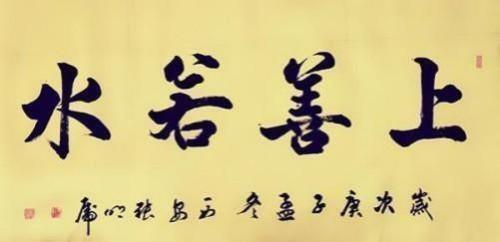 上善若水
歲次庚子孟冬 西安 張明虎